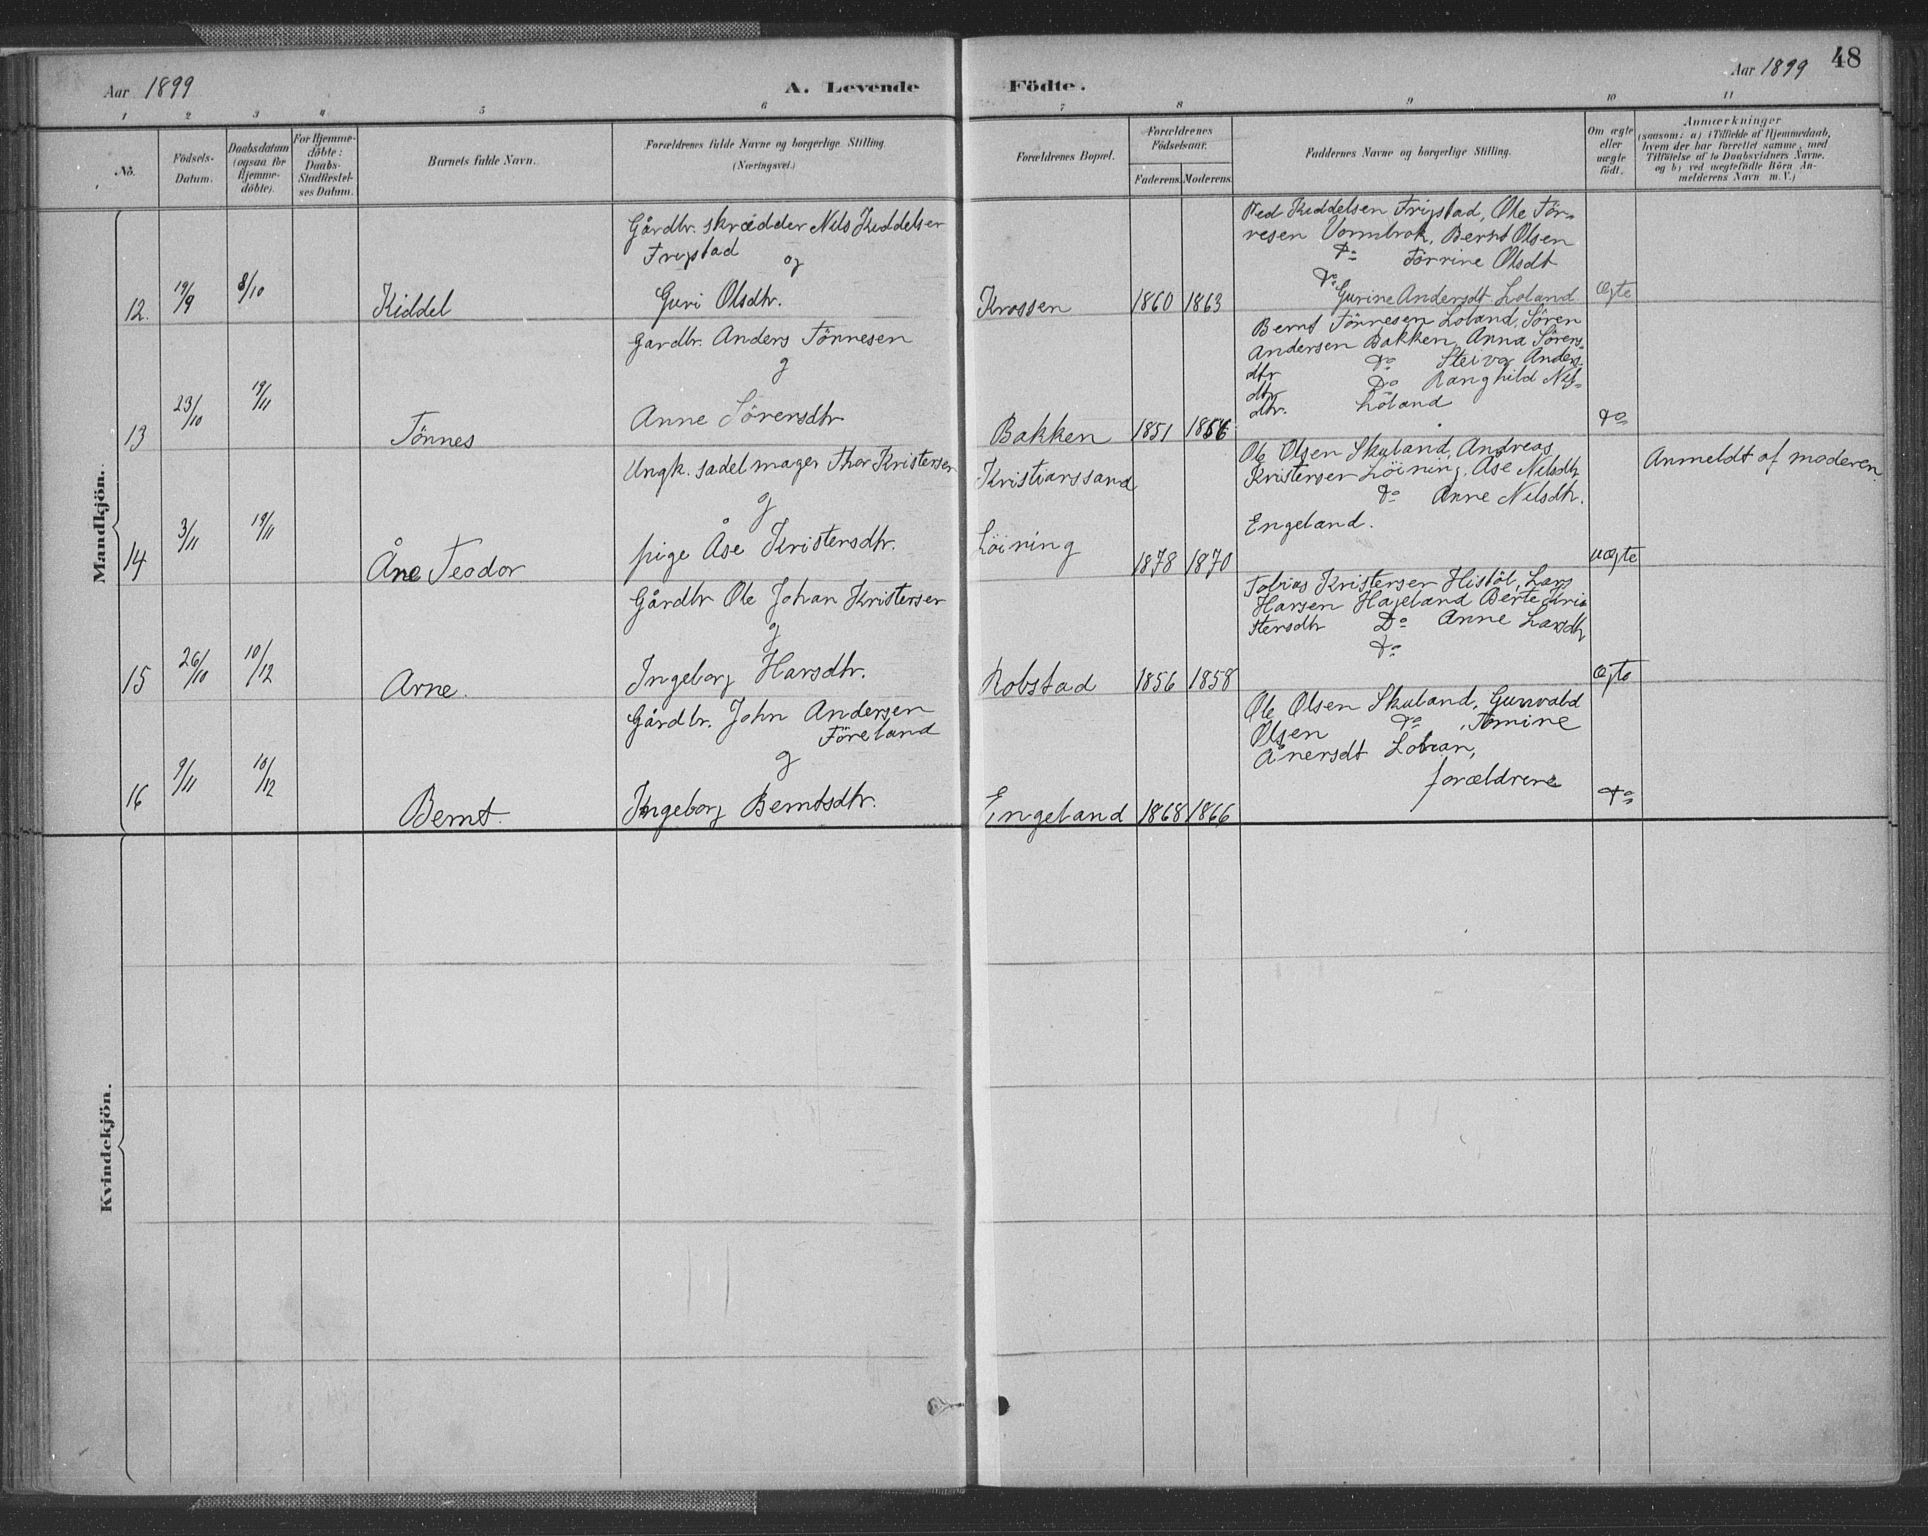 Aar 1899
A. Levende Födte.
Aar 1899
48
1 2 3 4 5 6 7 8 9 10 11
No.
Födsels-Datum.
Daabsdatum (ogsaa for Hjemmedöbte).
For Hjemmedöbte: Daabs-Stadfæstelses Datum.
Barnets fulde Navn.
Forældrenes fulde Navne og borgerlige Stilling (Næringsvei.)
Forældrenes Bopæl.
Forældrenes Födselsaar.
Faderens. Moderens.
Faddernes Navne og borgerlige Stilling.
Om ægte eller uægte födt.
Anmærkninger
(saasom: a) i Tilfælde af Hjemmedaab,
hvem der har forrettet samme, med
Tilföielse af to Daabsvidners Navne,
og b) ved uægtefödte Börn An-
melderens Navn m. V.)
Mandkjön.
12. 19/9 8/10 Kiddel
Gårdbr. skrædder Nils Kiddelsen
Frigstad og
Guri Olsdtr.
Krossen 1860 1863
Ped Kiddelsen Frigstad, Ole Tön-
nesen Vormbrok, Bernt Olsen
Do Tönnine Olsdt
Do
Gurine Andersdt Loland
Ægte
13 23/10 19/11 Tönnes
Gardbr. Anders Tönnesen
og
Anne Sörensdtr
Bakken 1851 1856
Bernt Tönnesen Loland, Sören
Andersen Bakken, Anna Sörens-
dtr Do Steiva Anders-
dtr Do Ranghild Nils-
dtr. Löland
Do
14 3/11 19/11 Åne Teodor
Ungk. sadelmager Thor Kristensen
og
pige Åse Kristensdtr.
Kristianssand
Löining 1878 1870
Ole Olsen Skuland, Andreas
Kristensen Löining, Åse Nilsdtr
Do Anne Nilsdtr.
Engeland.
uægte
Anmeldt af moderen
15 26/10 10/12 Arne.
Gårdbr Ole Johan Kristensen
og
Ingeborg Hansdtr.
Robstad 1856 1858
Tobias Kristensen Histöl, Lars
Hansen Hageland Berte Kri-
stensdtr Do Anne Larsdtr
Do
Ægte
16 9/11 10/12 Bernt.
Gårdbr. John Andersen
Föreland
og
Ingeborg Berntsdtr.
Engeland 1868 1866
Ole Olsen Skuland, Gunvald
Olsen Do, Tomine
Ånensdt
forældrene
Do
Kvindekjön.